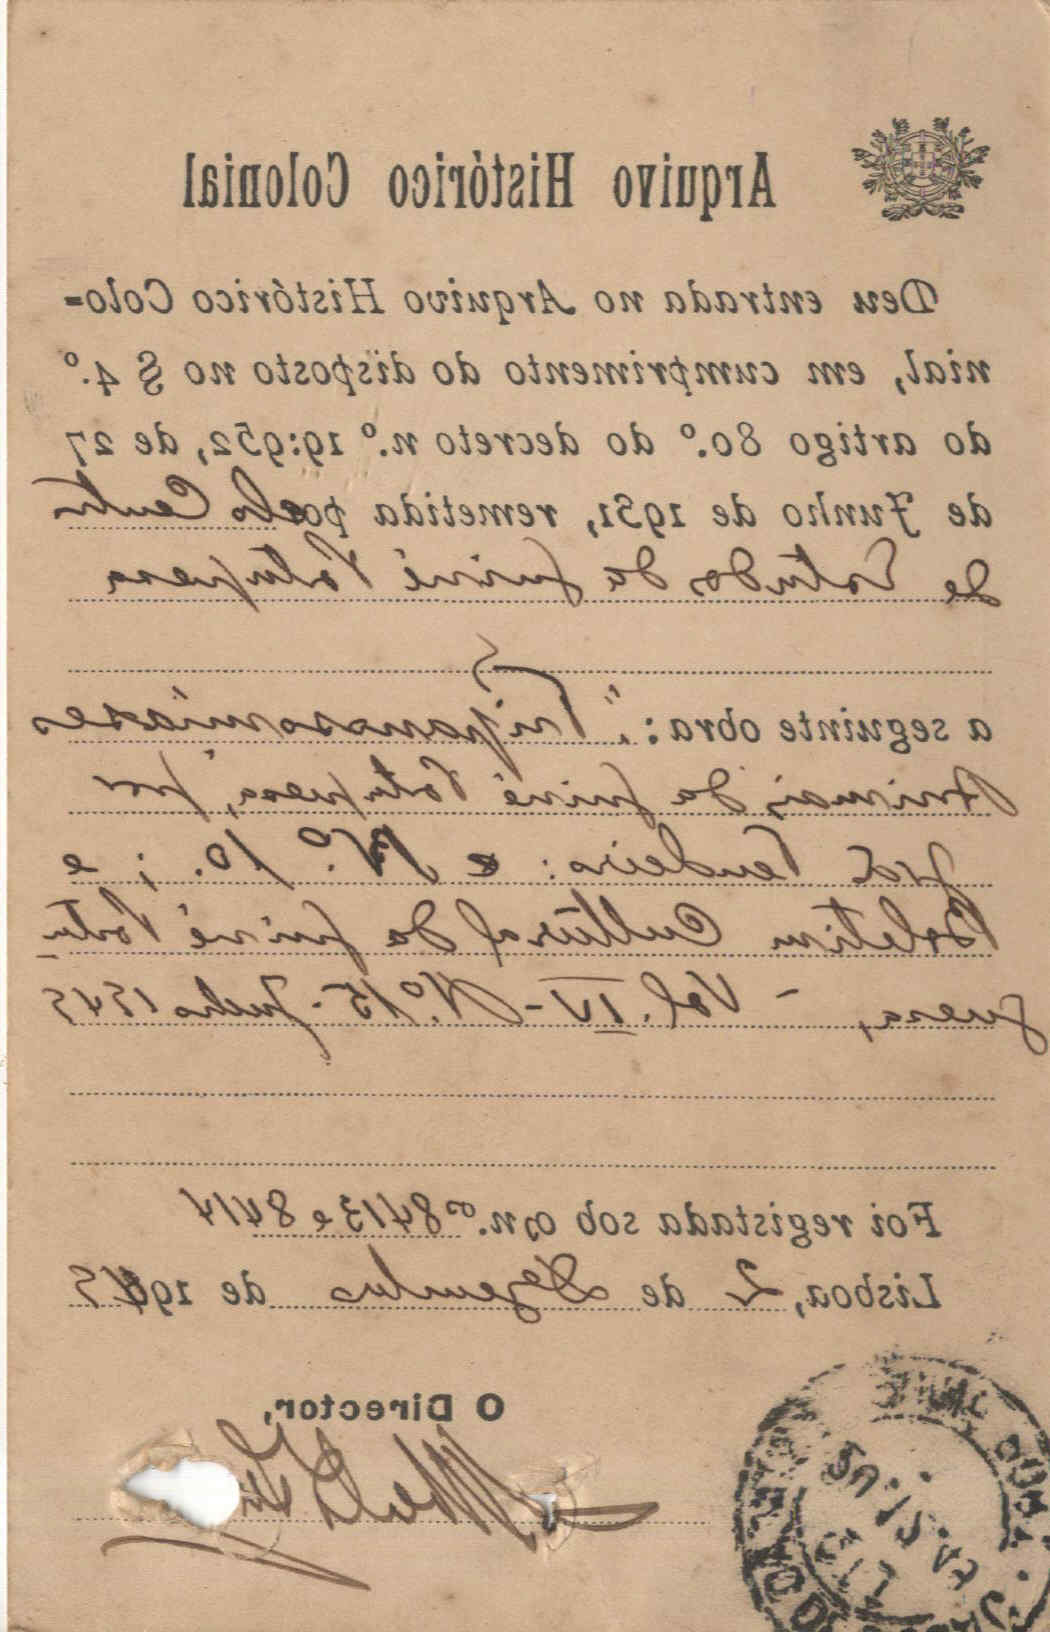 Arquivo Histórico Colonial
Deu entrada no Arquivo Histórico Colo=
nial, em cumprimento do disposto no § 4.º
do artigo 80.º do decreto n.º 19:952, de 27
de Junho de 1931, remetida pelo Centro
de Estudos da Guiné Portuguesa
a seguinte obra: "Tripanossomiases
Animais da Guiné Portuguesa", por
José Tendeiro: e N.º 10.; e
Boletim Cultural da Guiné Portu-
guesa, - Vol. IV - N.º 15 - Julho 1949
Foi registada sob os n.ºs 8413 e 8414
Lisboa, 2 de Dezembro de 19
O Director,